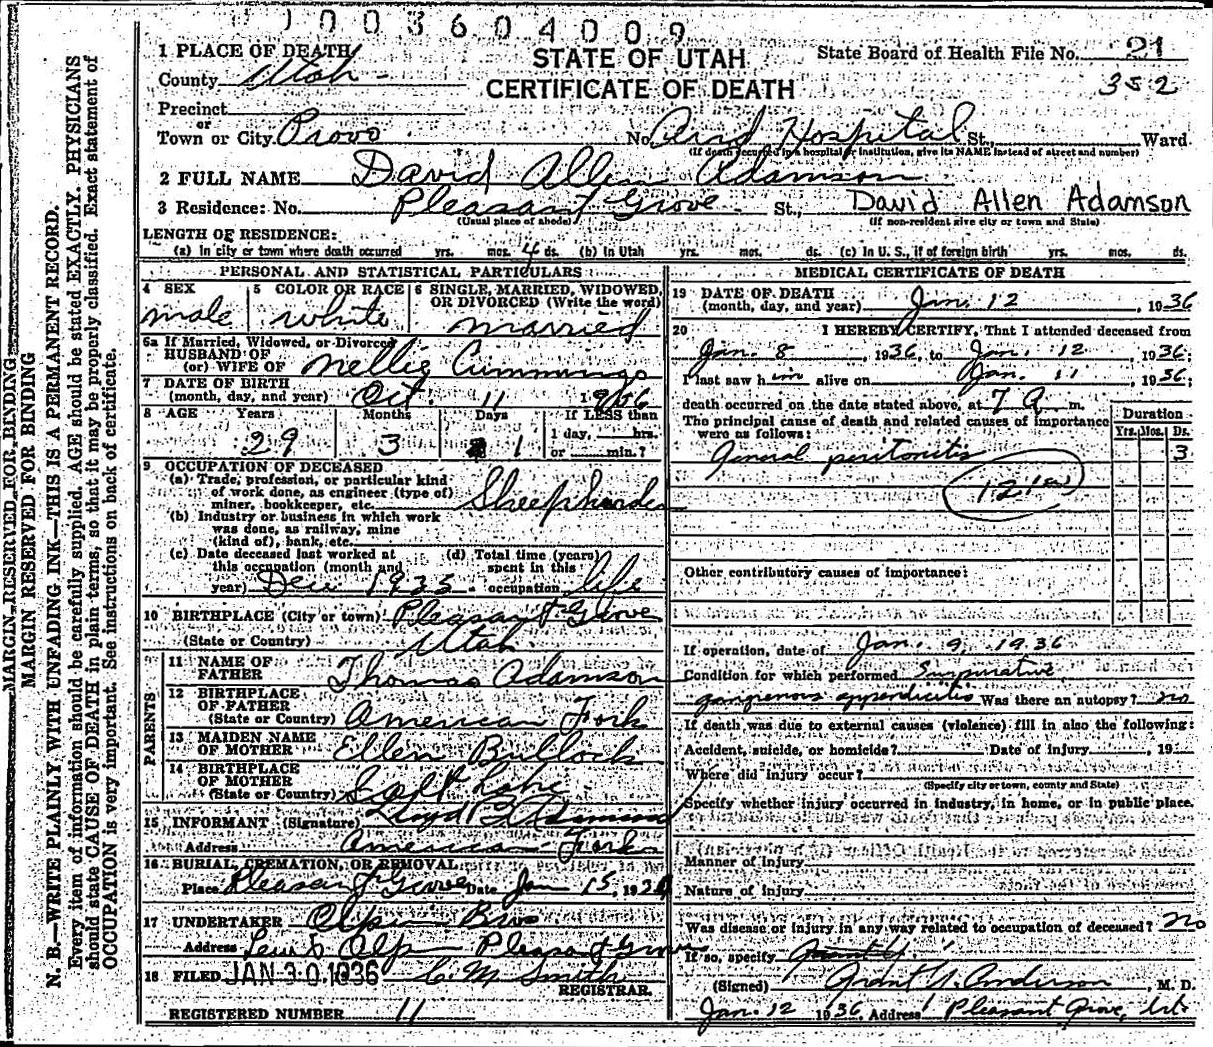 1003604009
1 PLACE OF DEATH
STATE OF UTAH
State Board of Health File No. 21
County Utah
CERTIFICATE OF DEATH
352
Precinct
or
Town or City Provo No. Hospital St., Ward
(If death occurred in a hospital or institution, give its NAME instead of street and number)
2 FULL NAME David Allen Adamson
3 Residence: No. Pleasant Grove St., David Allen Adamson
(Usual place of abode) (If non-resident give city or town and State)
LENGTH OF RESIDENCE:
(a) In city or town where death occurred yrs. mos. 4 ds. (b) In Utah yrs. mos. ds. (c) In U. S., if of foreign birth yrs. mos. ds.
PERSONAL AND STATISTICAL PARTICULARS
4 SEX 5 COLOR OR RACE 6 SINGLE, MARRIED, WIDOWED, OR DIVORCED (Write the word)
male white married
6a If Married, Widowed, or Divorced
HUSBAND OF
(or) WIFE OF Nellie Cummings
7 DATE OF BIRTH
(month, day, and year) Oct. 11 1906
8 AGE Years Months Days If LESS than
29 3 1 1 day, hrs.
or min.?
9 OCCUPATION OF DECEASED
(a) Trade, profession, or particular kind
of work done, as engineer (type of)
miner, bookkeeper, etc. Sheepherder
(b) Industry or business in which work
was done, as railway, mine
(kind of), bank, etc.
(c) Date deceased last worked at (d) Total time (years)
this occupation (month and spent in this
year) Dec 1935 occupation life
10 BIRTHPLACE (City or town) Pleasant Grove
(State or Country) Utah
PARENTS
11 NAME OF
FATHER Thomas Adamson
12 BIRTHPLACE
OF FATHER
(State or Country) American Fork
13 MAIDEN NAME
OF MOTHER Ellen Bullock
14 BIRTHPLACE
OF MOTHER
(State or Country) Salt Lake
15 INFORMANT (Signature) Lloyd B Adamson
Address American Fork
16 BURIAL, CREMATION, OR REMOVAL
Place Pleasant Grove Date Jan 15, 19
17 UNDERTAKER Olpin Bros
Address Pleasant Grove
18 FILED JAN 30 1936 C. M. Smith
REGISTRAR.
REGISTERED NUMBER 11
MEDICAL CERTIFICATE OF DEATH
19 DATE OF DEATH
(month, day, and year) Jan. 12, 1936
20 I HEREBY CERTIFY, That I attended deceased from
Jan. 8, 1936, to Jan. 12, 1936;
I last saw him alive on Jan. 11, 1936;
death occurred on the date stated above, at 7 A m.
The principal cause of death and related causes of importance
were as follows:
Duration
Yrs. Mos. Ds.
General peritonitis 3
Other contributory causes of importance:
If operation, date of Jan. 9, 1936
Condition for which performed Suppurative
gangrenous appendicitis Was there an autopsy? no
If death was due to external causes (violence) fill in also the following:
Accident, suicide, or homicide? Date of injury , 19
Where did injury occur?
(Specify city or town, county and State)
Specify whether injury occurred in industry, in home, or in public place.
Manner of injury
Nature of injury
Was disease or injury in any way related to occupation of deceased? no
If so, specify
(Signed) Grant Y. Anderson, M. D.
Jan. 12 1936. Address Pleasant Grove, Ut.
MARGIN RESERVED FOR BINDING
MARGIN RESERVED FOR BINDING
N. B.—WRITE PLAINLY WITH UNFADING INK—THIS IS A PERMANENT RECORD.
Every item of information should be carefully supplied. AGE should be stated EXACTLY. PHYSICIANS
should state CAUSE OF DEATH in plain terms, so that it may be properly classified. Exact statement of
OCCUPATION is very important. See instructions on back of certificate.